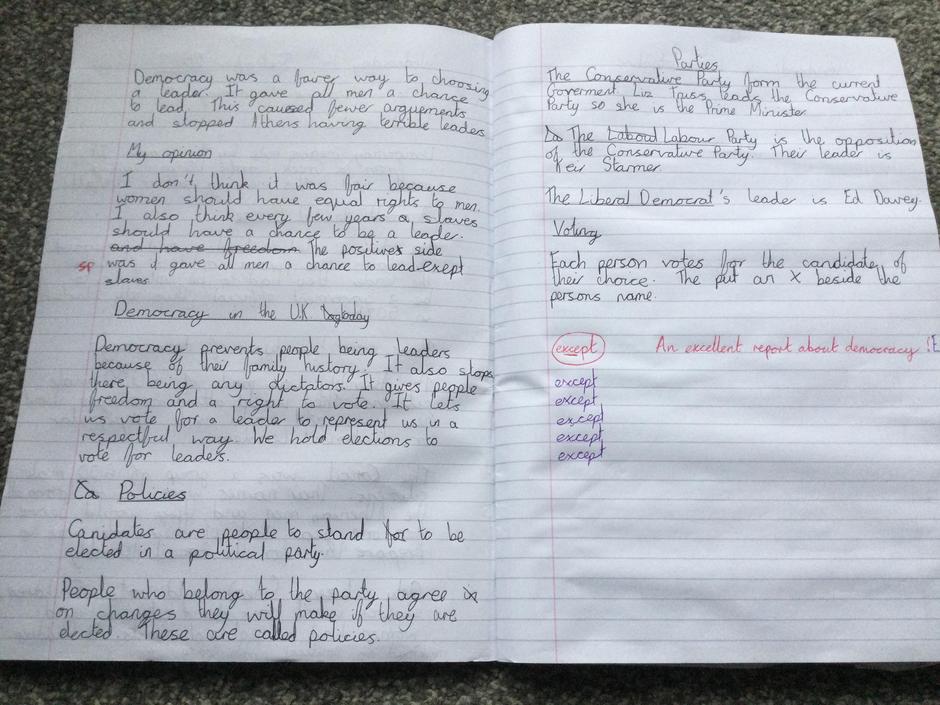 Democracy was a faver way to choosing
a leader. It gave all men a chance
to lead. This caused fewer arguements
and stopped Athens having terrible leaders
My opinion
I don't think it was fair because
women should have equal rights to men.
I also think every few years a slaves
should have a chance to be a leader.
and have freedom. The positives side
sp was it gave all men a chance to lead exept
slaves
Democracy in the U.K today
Democracy prevents people being leaders
because of their family history. It also stops
there being any dictators. It gives people
freedom and a right to vote. It lets
us vote for a leader to represent us in a
respectful way. We hold elections to
vote for leaders.
Policies
Canidates are people to stand for to be
elected in a political party.
People who belong to the party agree
on changes they will make if they are
elected. These are called policies.
Parties
The Conservative Party form the current
Goverment. Liz Truss leads the Conservative
Party so she is the Prime Minister
The Laboul Labour Party is the opposition
of the Conservative Party. Their leader is
Keir Starmer
The Liberal Democrat's leader is Ed Davey.
Voting
Each person votes for the candidate of
their choice. The put an X beside the
persons name.
except An excellent report about democracy!
except
except
except
except
except